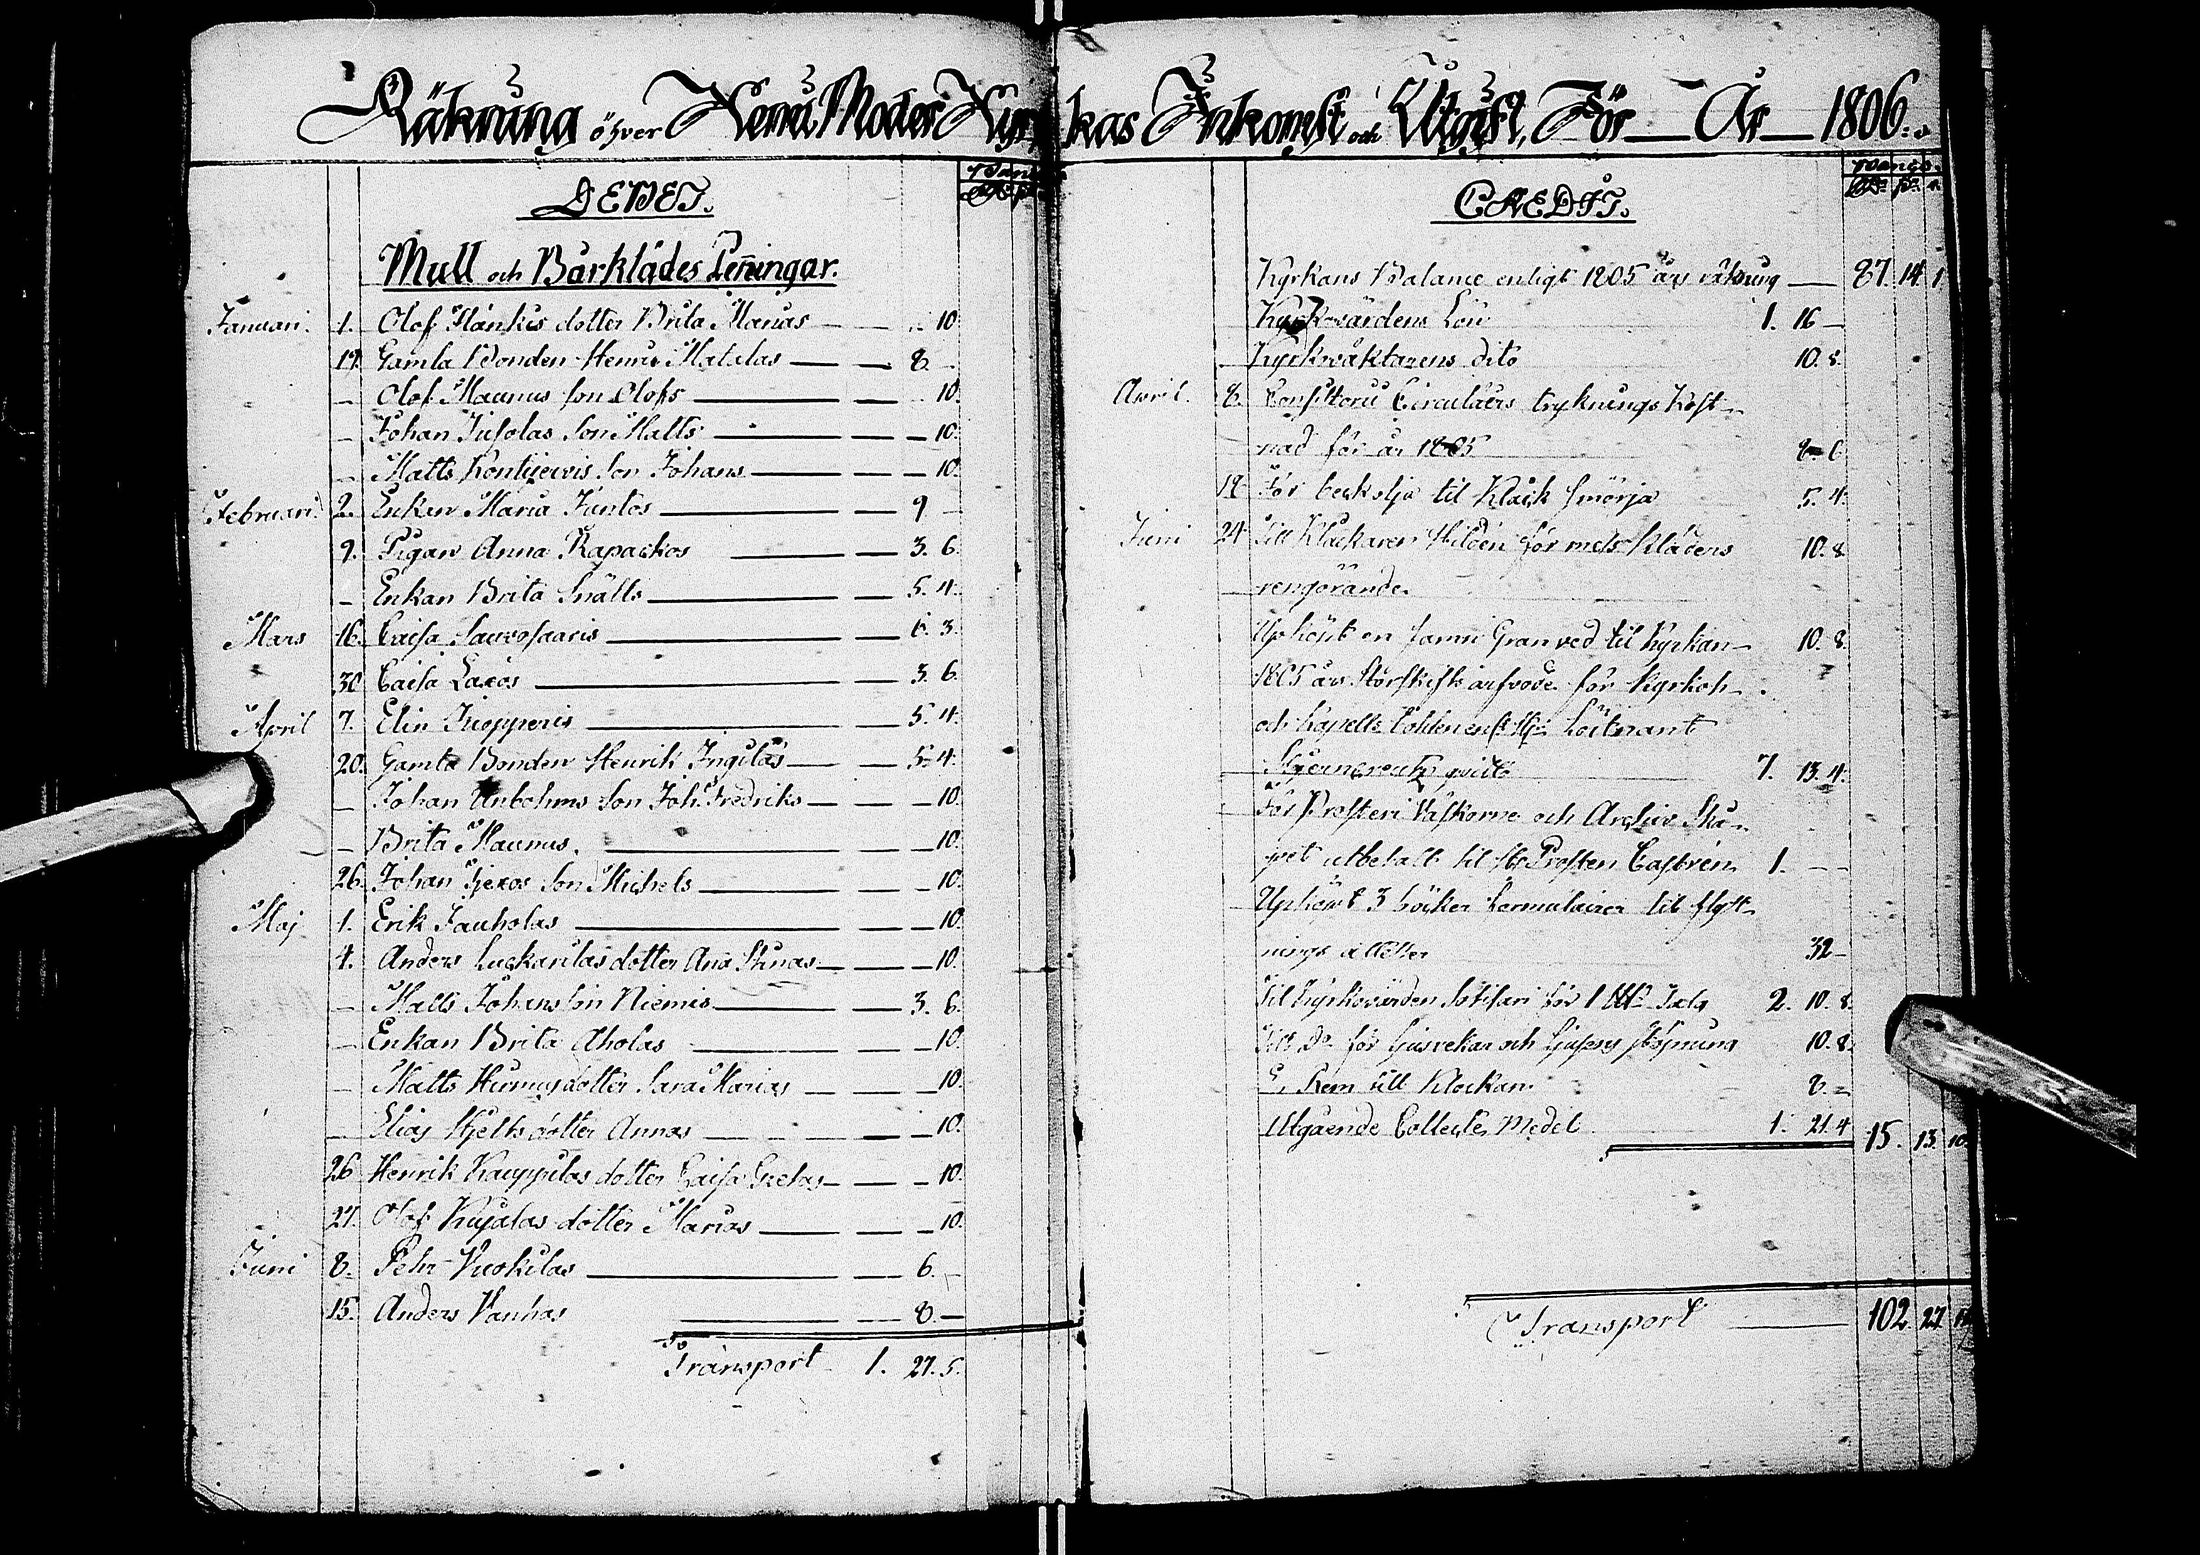 Räkning öfver Kemi Moder Kyrkas Inkomst och Utgift, För År 1806.
DEBET.
Mull och Bårklädes Peñingar.
Januari. 1. Olof Hánkis dotter Brita Marias 10.
19. Gamla Bonden Henric Matalas 8.
Olof Maunus son Olofs 10.
Johan Jusolas son Matts 10.
Matts Kontijervis son Johans 10.
Februari. 2. Enkan Maria Juntos 9
9. Pigan Anna Rapackos 3. 6.
Enkan Brita Snälls 5. 4.
Mars 16. Caisa Sauvosaaris 6. 3.
30 Caisa Laxos 3. 6.
April 7. Elin Knopperis 5. 4.
20. Gamla Bonden Henrik Ingilas 5. 4.
Johan Unbohms son Joh. Fredriks 10.
Brita Maunus. 10.
26. Johan son Michels 10.
Maj 1. Erik Jauholas 10.
4. Anders Luckarilas dotter Aña Stinas 10.
Matts Johansson Niemis 3. 6.
Enkan Brita Aholas 10.
Matts Hurnus dotter Sara Marias 10.
Elias Hjelts dotter Annas 10.
26 Henrik Kauppilas dotter Caisa Gretas 10.
27. Olof Kujalas dotter Marias 10.
Juni 8. Pehr Vuokilas 6.
15. Anders Vanhas 8.
Transport 1. 27. 5.
CREDIT.
Kyrkans Balance enligt 1805 års räkning 87. 14. 1
Kyrkovärdens Lön 1. 16
Kyrkväktarens dito 10. 8.
April. 8. Consistorii Circulairs tryknings Kost-
nad för år 1805 8. 6
19. För beckolja til Klåck smörja 5. 4.
Juni 24. Till Klåckaren Hildén för mess Klädens 10. 8.
rengörande.
Upköpt en famn Granved til Kyrkan 10. 8.
1805 års Storskifts arfvode för Kyrkoh.
och Capells Bohlen Löitnant
Stjerncreutz quitto 7. 13. 4.
För Prosteri Väskorne och Archiv Skå-
pet utbetalt til Hr Prosten Castrén 1.
Upköpt 3 böcker Formulairer til flytt-
nings attester 32
Til Kyrkovärden Sotisari för 1 Talg 2. 10. 8.
Till Do för Ljusvekar och Ljusens stöpning 10. 8.
E, Rem till Klockan 8.
Utgående Collecte Medel 1. 21. 4 15. 13. 10.
Transport 102. 27.